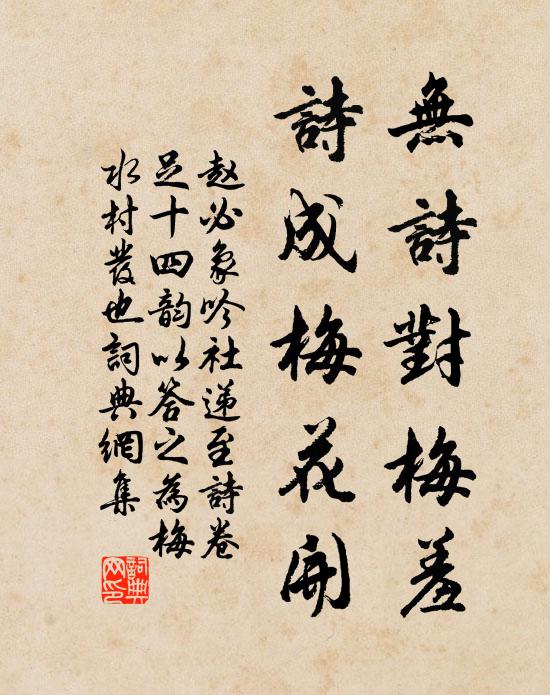 無詩對梅羞
詩成梅花開
赵必象吟社递至詩卷
足十四韵以答之為梅
水村發也詞典網集
詞典网印